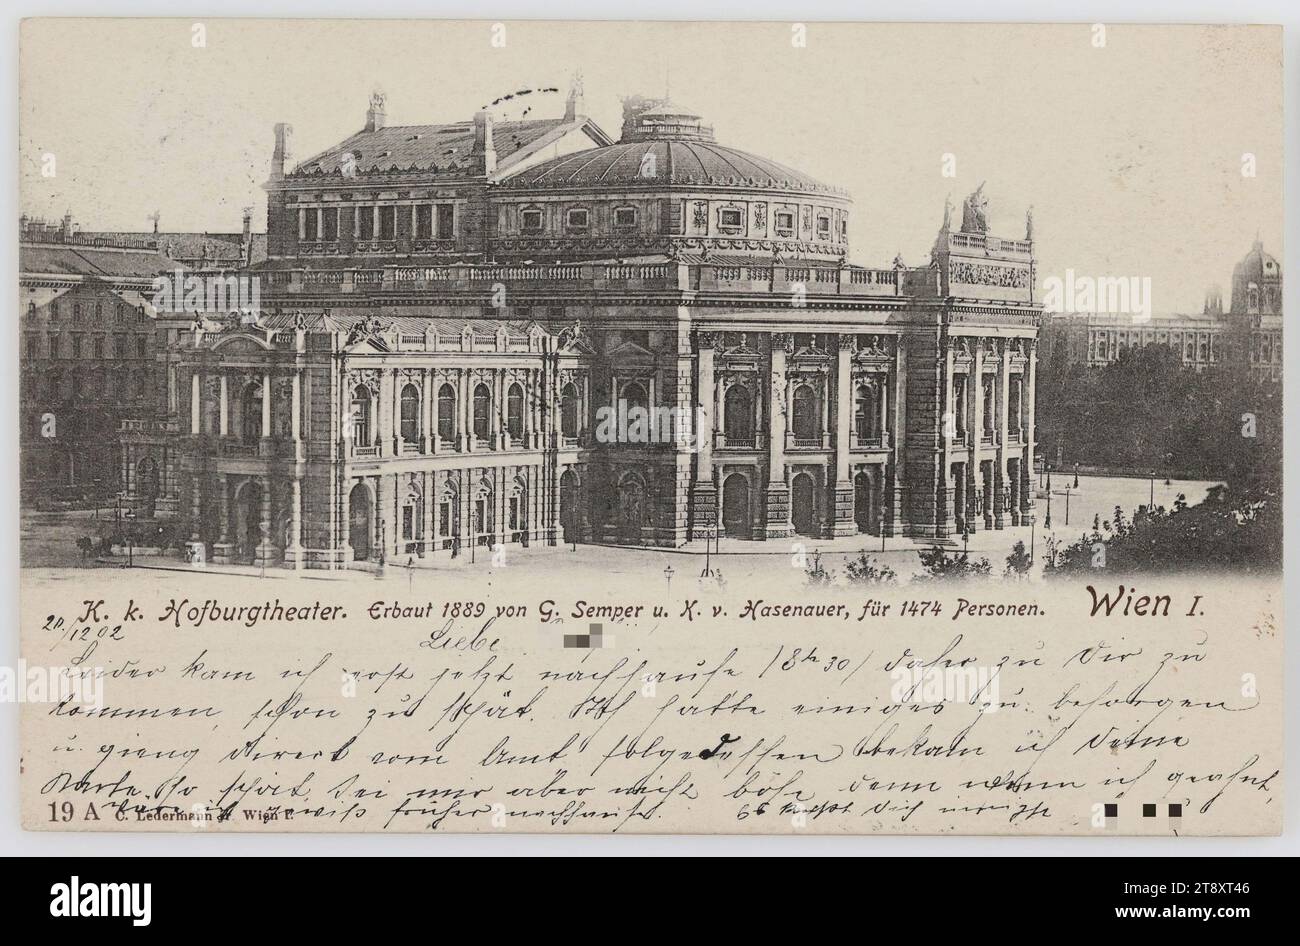 K. k. Hofburgtheater. Erbaut 1889 von G. Semper u. K. v. Hasenauer, für 1474 Personen. Wien I.
20./12 02
Liebe
Leider kam ich erst jetzt nachhause (8 h 30) daher zu Dir zu
kommen, schon zu spät. Ich hatte einiges zu besorgen
u. gieng direct vom Amt folgedessen bekam ich Deine
Karte so spät sei mir aber nicht böse denn wenn ich geahnt,
wäre ich gewiß früher nachhause. Es küsst Dich innigst
19 A C. Ledermann jr. Wien I.
alamy
alamy
Image ID: 2S7XT46
www.alamy.com